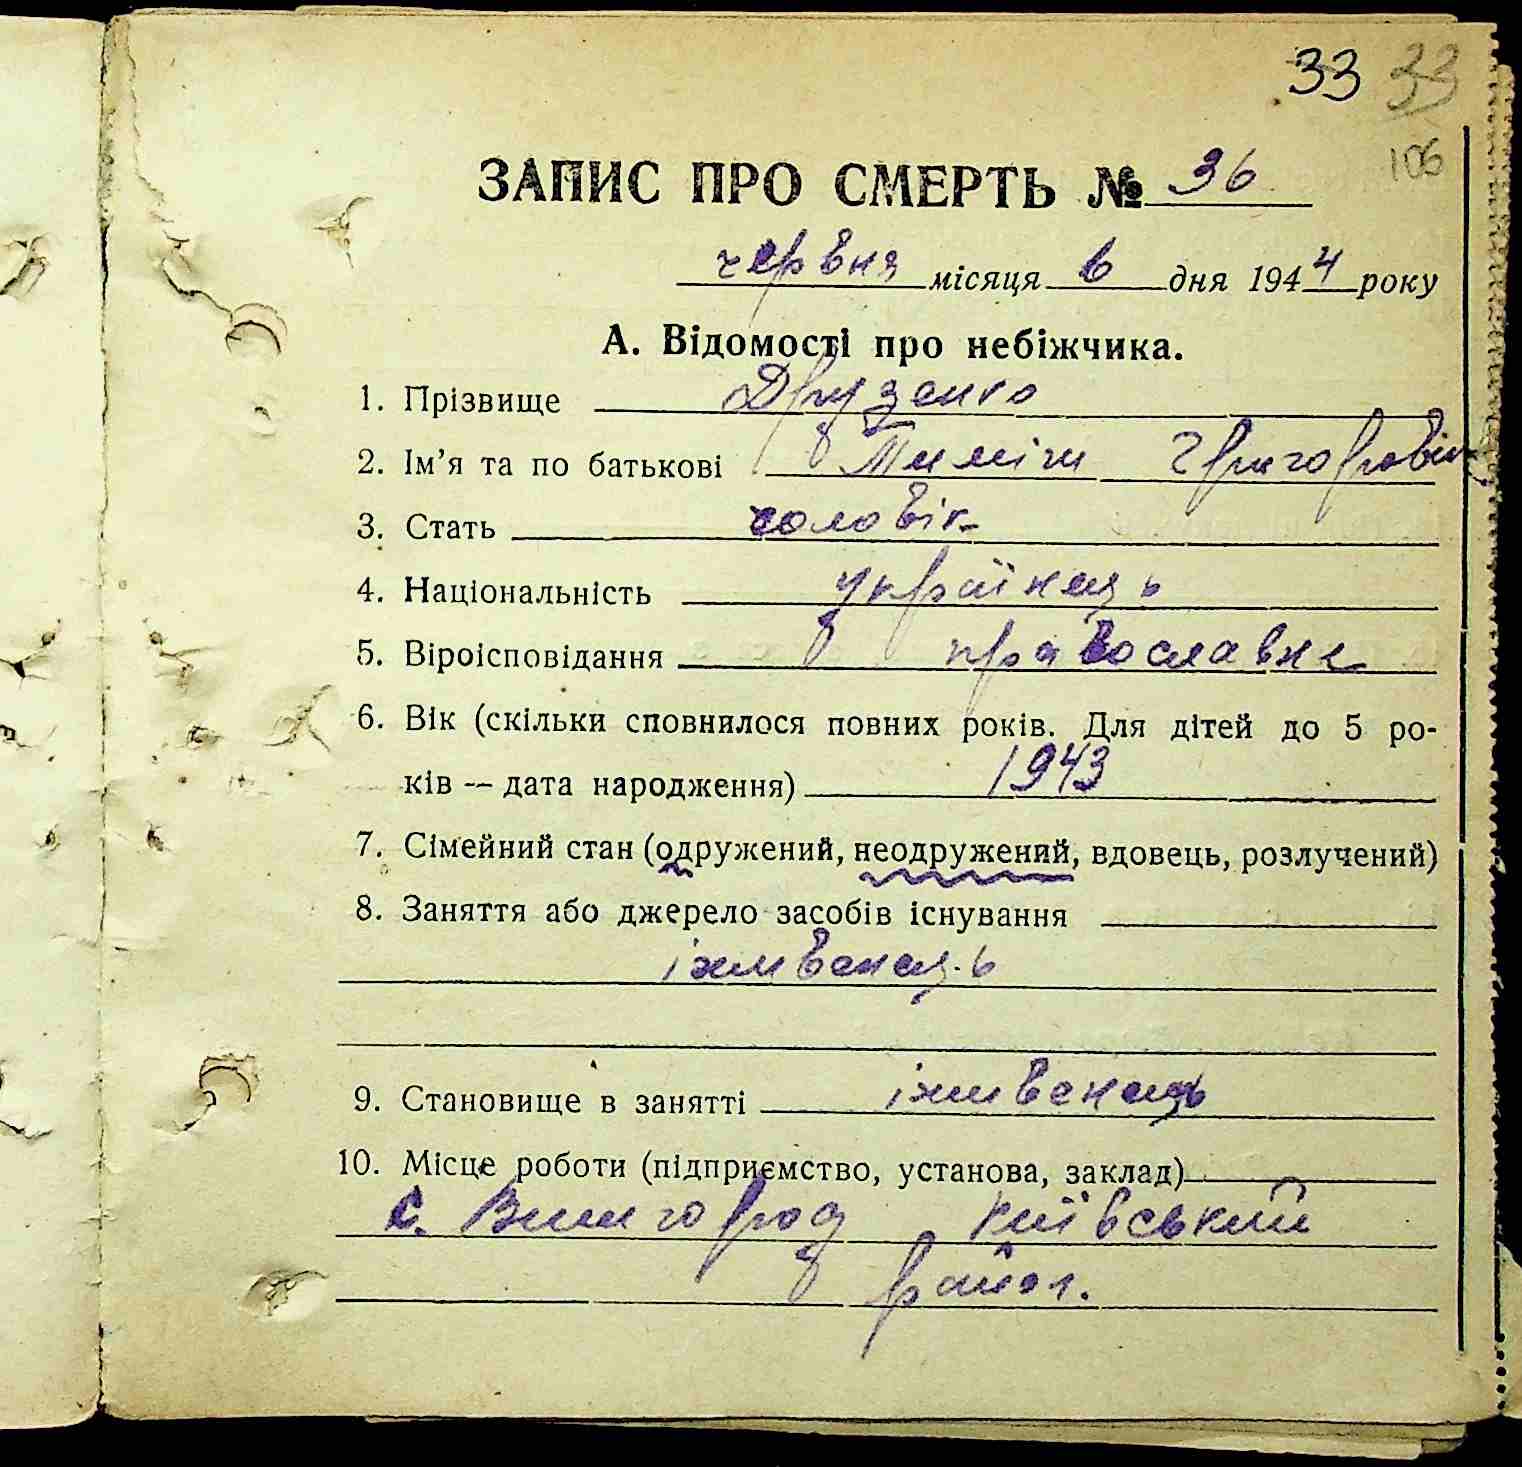 33 33
106
ЗАПИС ПРО СМЕРТЬ № 36
червня місяця 6 дня 1944 року
А. Відомості про небіжчика.
1. Прізвище Друзенко
2. Ім'я та по батькові Тиміш Григоровіч
3. Стать чоловік
4. Національність українець
5. Віроісповідання православне
6. Вік (скільки сповнилося повних років. Для дітей до 5 ро-
ків — дата народження) 1943
7. Сімейний стан (одружений, неодружений, вдовець, розлучений)
8. Заняття або джерело засобів існування
іжмвенець
9. Становище в занятті іжмвенець
10. Місце роботи (підприємство, установа, заклад)
с. Вишгород Київський
район.